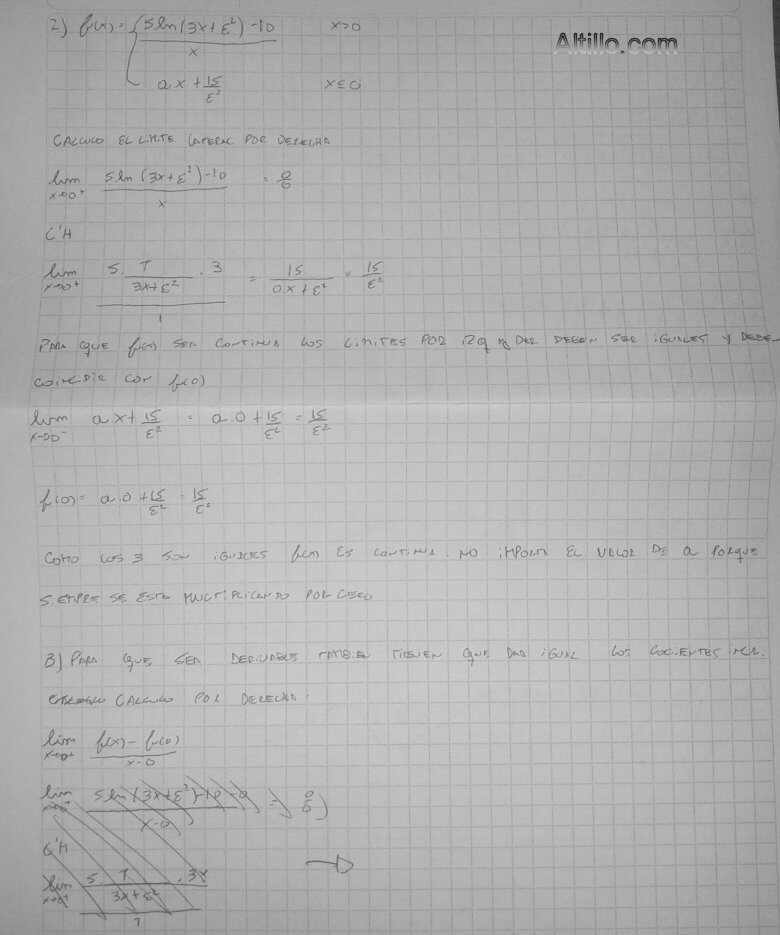 Altillo.com
2) f(x) = { (5 ln(3x+ε²) -10)/x   x>0
ax + 15/ε²   x≤0
CALCULO EL LIMITE LATERAL POR DERECHA
lim x→0⁺ (5 ln(3x+ε²) -10)/x = 0/0
L'H
lim x→0⁺ (5 . 1/(3x+ε²) . 3)/1 = 15/(0.x+ε²) = 15/ε²
PARA QUE f(x) SEA CONTINUA LOS LIMITES POR IZQ y DER DEBEN SER IGUALES Y DEBE
COINCIDIR CON f(0)
lim x→0⁻ ax + 15/ε² = a.0 + 15/ε² = 15/ε²
f(0) = a.0 + 15/ε² = 15/ε²
COMO LOS 3 SON IGUALES f(x) ES CONTINUA. NO IMPORTA EL VALOR DE a PORQUE
SIEMPRE SE ESTA MULTIPLICANDO POR CERO
B) PARA QUE SEA DERIVABLE TAMBIEN TIENEN QUE DAR IGUAL LOS COCIENTES
CALCULO POR DERECHA:
lim x→0⁺ (f(x) - f(0))/(x-0)
lim (5 ln(3x+ε²) -10 -0)/(x-0) = 0/0
L'H
lim x→0⁺ (5 . 1/(3x+ε²) . 3x)/1